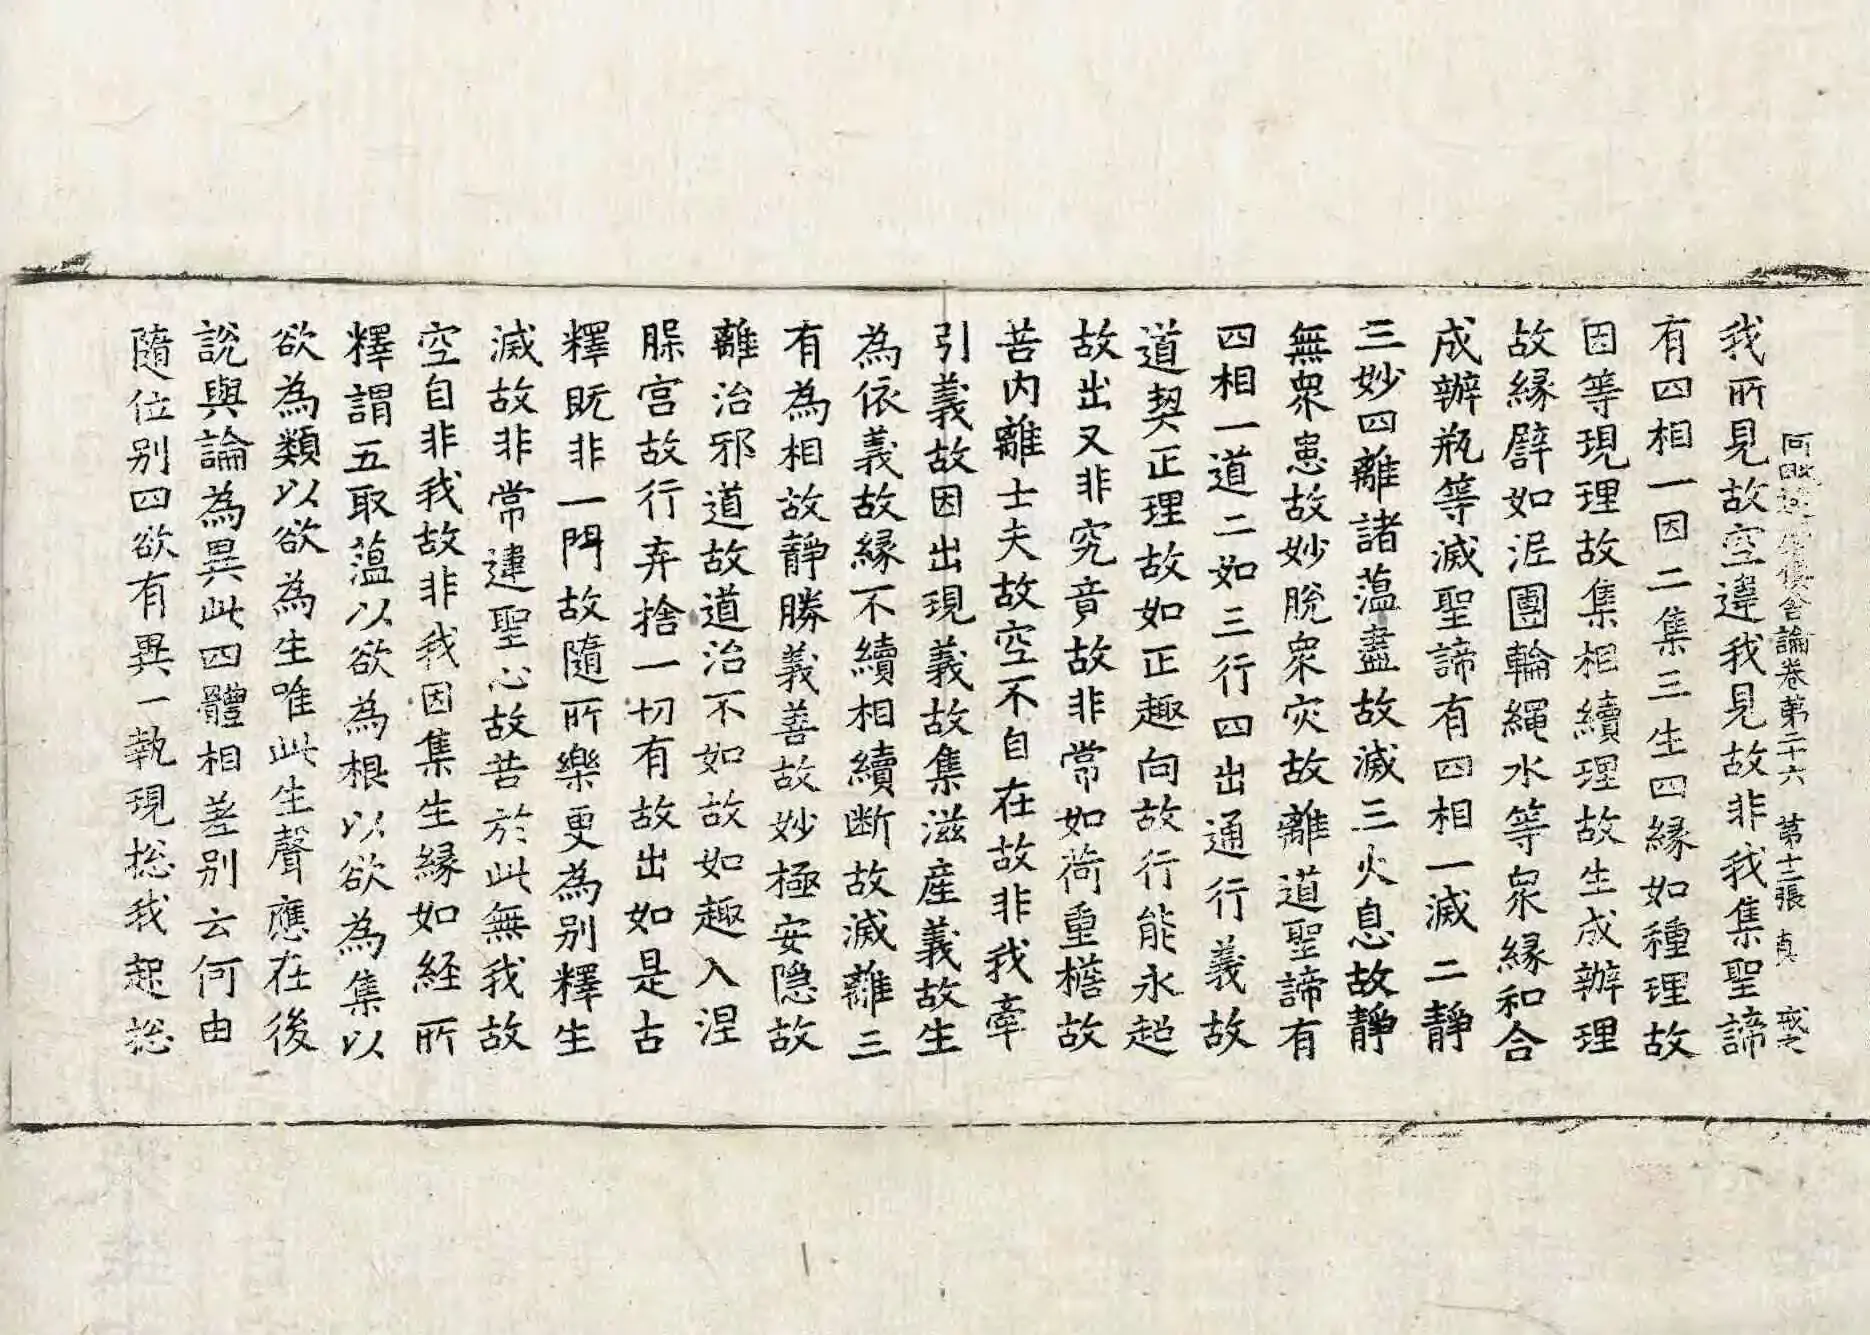 阿毗達磨俱舍論卷第二十六　第十三張　真
我所見故空違我見故非我集聖諦
有四相一因二集三生四緣如種理故
因等現理故集相續理故生成辦理
故緣譬如泥團輪繩水等眾緣和合
成辦瓶等滅聖諦有四相一滅二靜
三妙四離諸蘊盡故滅三火息故靜
無眾患故妙脫眾灾故離道聖諦有
四相一道二如三行四出通行義故
道契正理故如正趣向故行能永超
故出又非究竟故非常如荷重檐故
苦內離士夫故空不自在故非我牽
引義故因出現義故集滋產義故生
為依義故緣不續相續斷故滅離三
有為相故靜勝義善故妙極安隱故
離治邪道故道治不如故如趣入涅
槃宮故行弃捨一切有故出如是古
釋既非一門故隨所樂更為別釋生
滅故非常違聖心故苦於此無我故
空自非我故非我因集生緣如經所
釋謂五取蘊以欲為根以欲為集以
欲為類以欲為生唯此生聲應在後
說與論為異此四體相差別云何由
隨位別四欲有異一執現揔我起揔